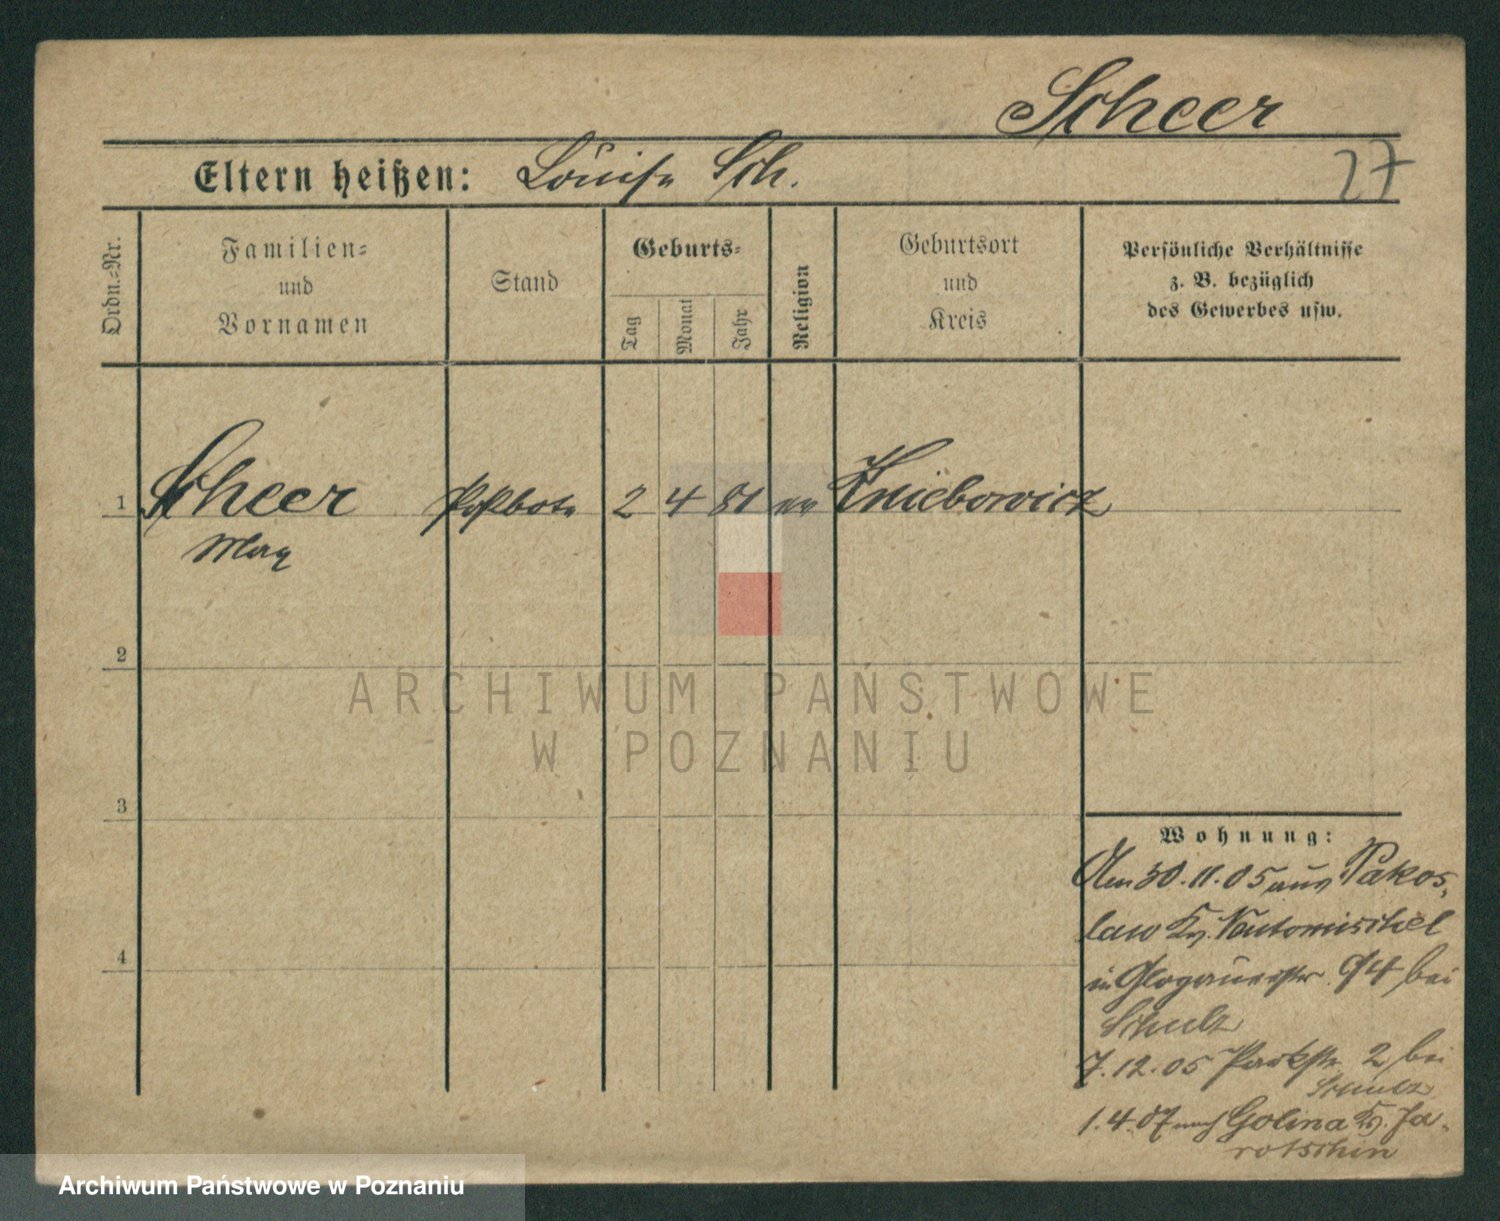 Scheer
27
Eltern heißen: Louise Sch.
Ordn.-Nr.
Familien-
und
Vornamen
Stand
Geburts-
Tag
Monat
Jahr
Religion
Geburtsort
und
Kreis
Persönliche Verhältnisse
z. B. bezüglich
des Gewerbes usw.
1 Scheer Postbote 2 4 81 ev Kniebowicz
Max
2
3
4
ARCHIWUM PAŃSTWOWE
W POZNANIU
Wohnung:
Am 30.11.05 aus Pakos-
law Kr. Neutomischel
in Glogauerstr. 94 bei
Schulz
7.12.05 Parkstr. 2 bei
Schulz
1.4.07 nach Golina Kr. Ja-
rotschin
Archiwum Państwowe w Poznaniu